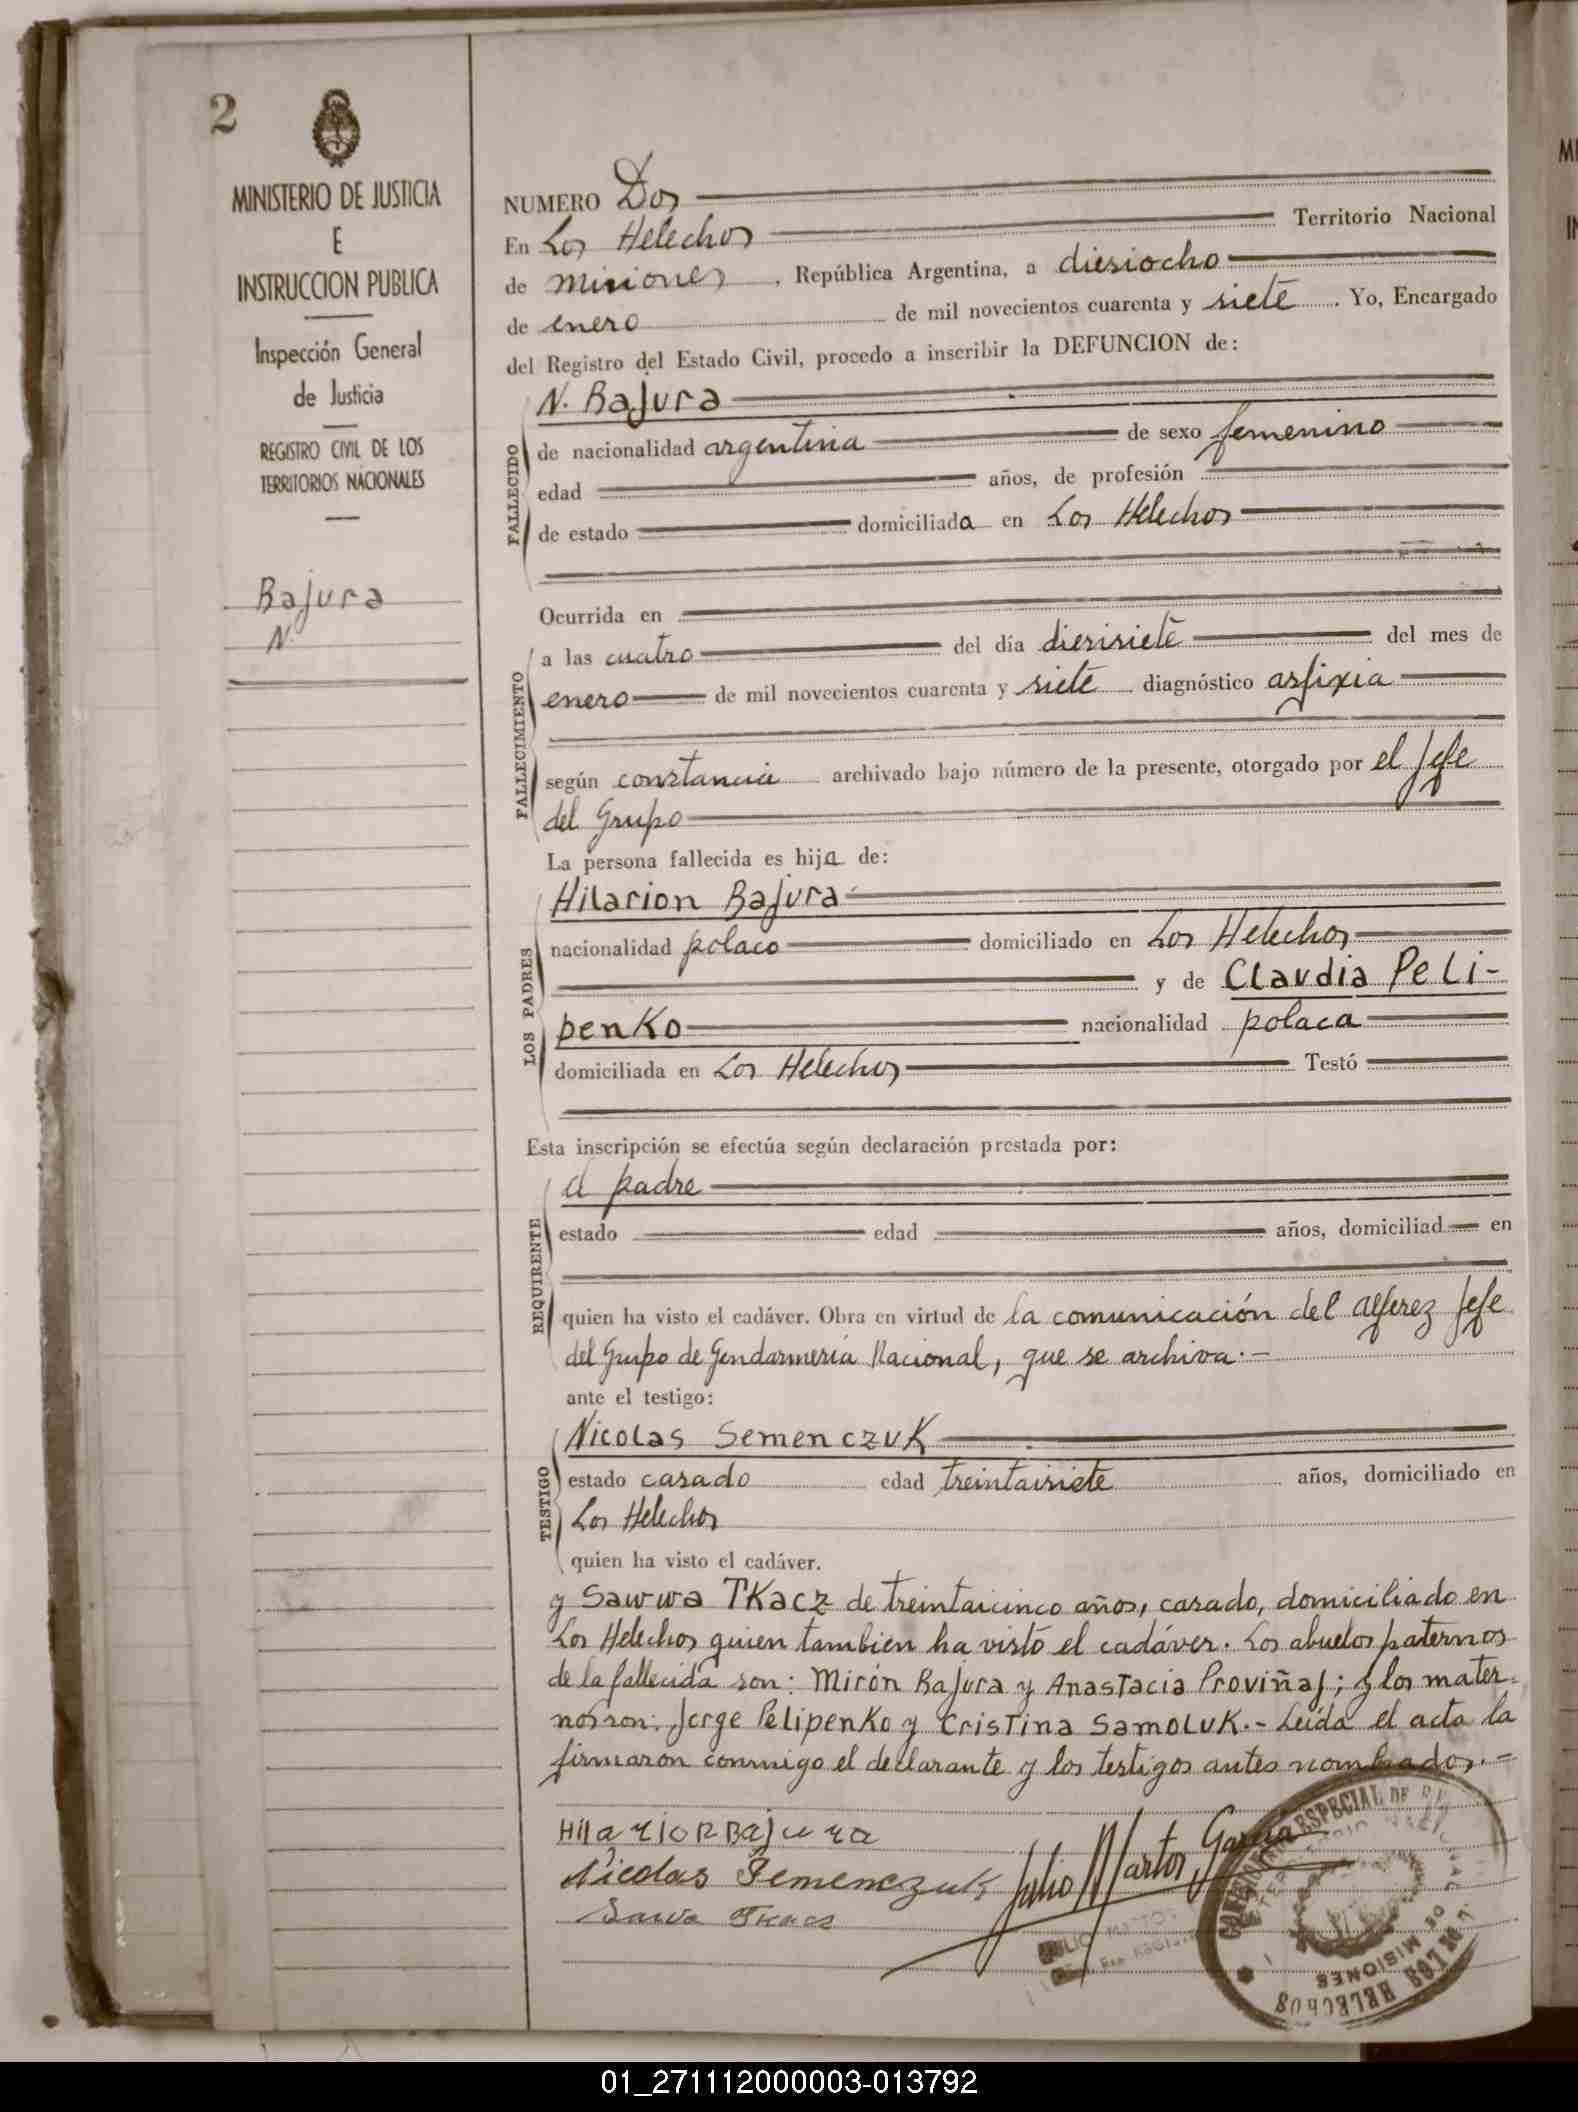 2
MINISTERIO DE JUSTICIA
E
INSTRUCCION PUBLICA
Inspección General
de Justicia
REGISTRO CIVIL DE LOS
TERRITORIOS NACIONALES
Bajura
N.
NUMERO Dos
En Los Helechos Territorio Nacional
de Misiones, República Argentina, a diesiocho
de enero de mil novecientos cuarenta y siete. Yo, Encargado
del Registro del Estado Civil, procedo a inscribir la DEFUNCION de:
FALLECIDO
N. Bajura
de nacionalidad argentina de sexo femenino
edad años, de profesión
de estado domiciliada en Los Helechos
FALLECIMIENTO
Ocurrida en
a las cuatro del día diesisiete del mes de
enero de mil novecientos cuarenta y siete diagnóstico asfixia
según constancia archivado bajo número de la presente, otorgado por el Jefe
del Grupo
La persona fallecida es hija de:
LOS PADRES
Hilarion Bajura
nacionalidad polaco domiciliado en Los Helechos
y de Claudia Peli-
penko nacionalidad polaca
domiciliada en Los Helechos Testó
Esta inscripción se efectúa según declaración prestada por:
REQUIRENTE
el padre
estado edad años, domiciliad en
quien ha visto el cadáver. Obra en virtud de la comunicación del alferez Jefe
del Grupo de Gendarmería Nacional, que se archiva.-
ante el testigo:
TESTIGO
Nicolas Semenczuk
estado casado edad treintaisiete años, domiciliado en
Los Helechos
quien ha visto el cadáver.
y Sawwa Tkacz de treintaicinco años, casado, domiciliado en
Los Helechos quien tambien ha visto el cadáver. Los abuelos paternos
de la fallecida son: Mirón Bajura y Anastacia Proviñas; y los mater-
nos son: Jorge Pelipenko y Cristina Samoluk.- Leida el acta la
firmaron conmigo el declarante y los testigos antes nombrados.-
Hilarion Bajura
Nicolas Semenczuk
Julio Martos Garcia
Sawa Tkacz
ESPECIAL DE
MISIONES
DE LOS HELECHOS
01_271112000003-013792